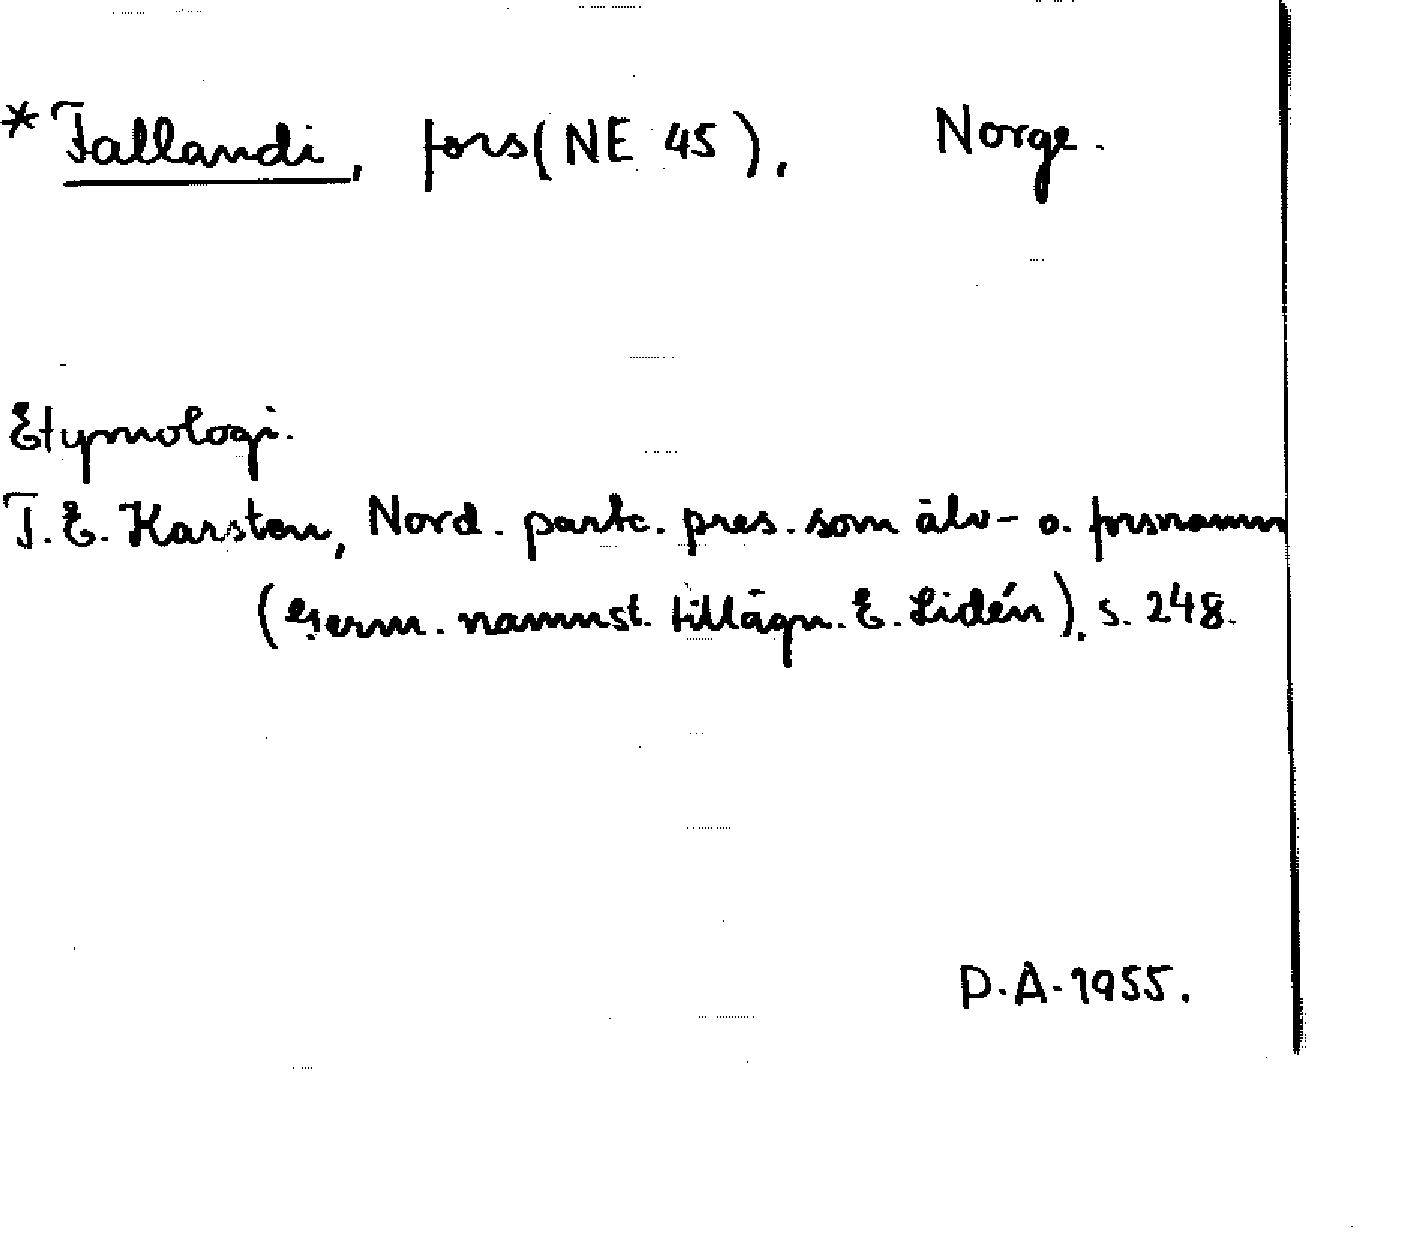 *Fallandi, fors (NE 45). Norge.
Etymologi.
T. E. Karsten, Nord. partc. pres. som älv- o. forsnamn
(Germ. namnst. tillägn. E. Lidén), s. 248.
D.A. 1955.